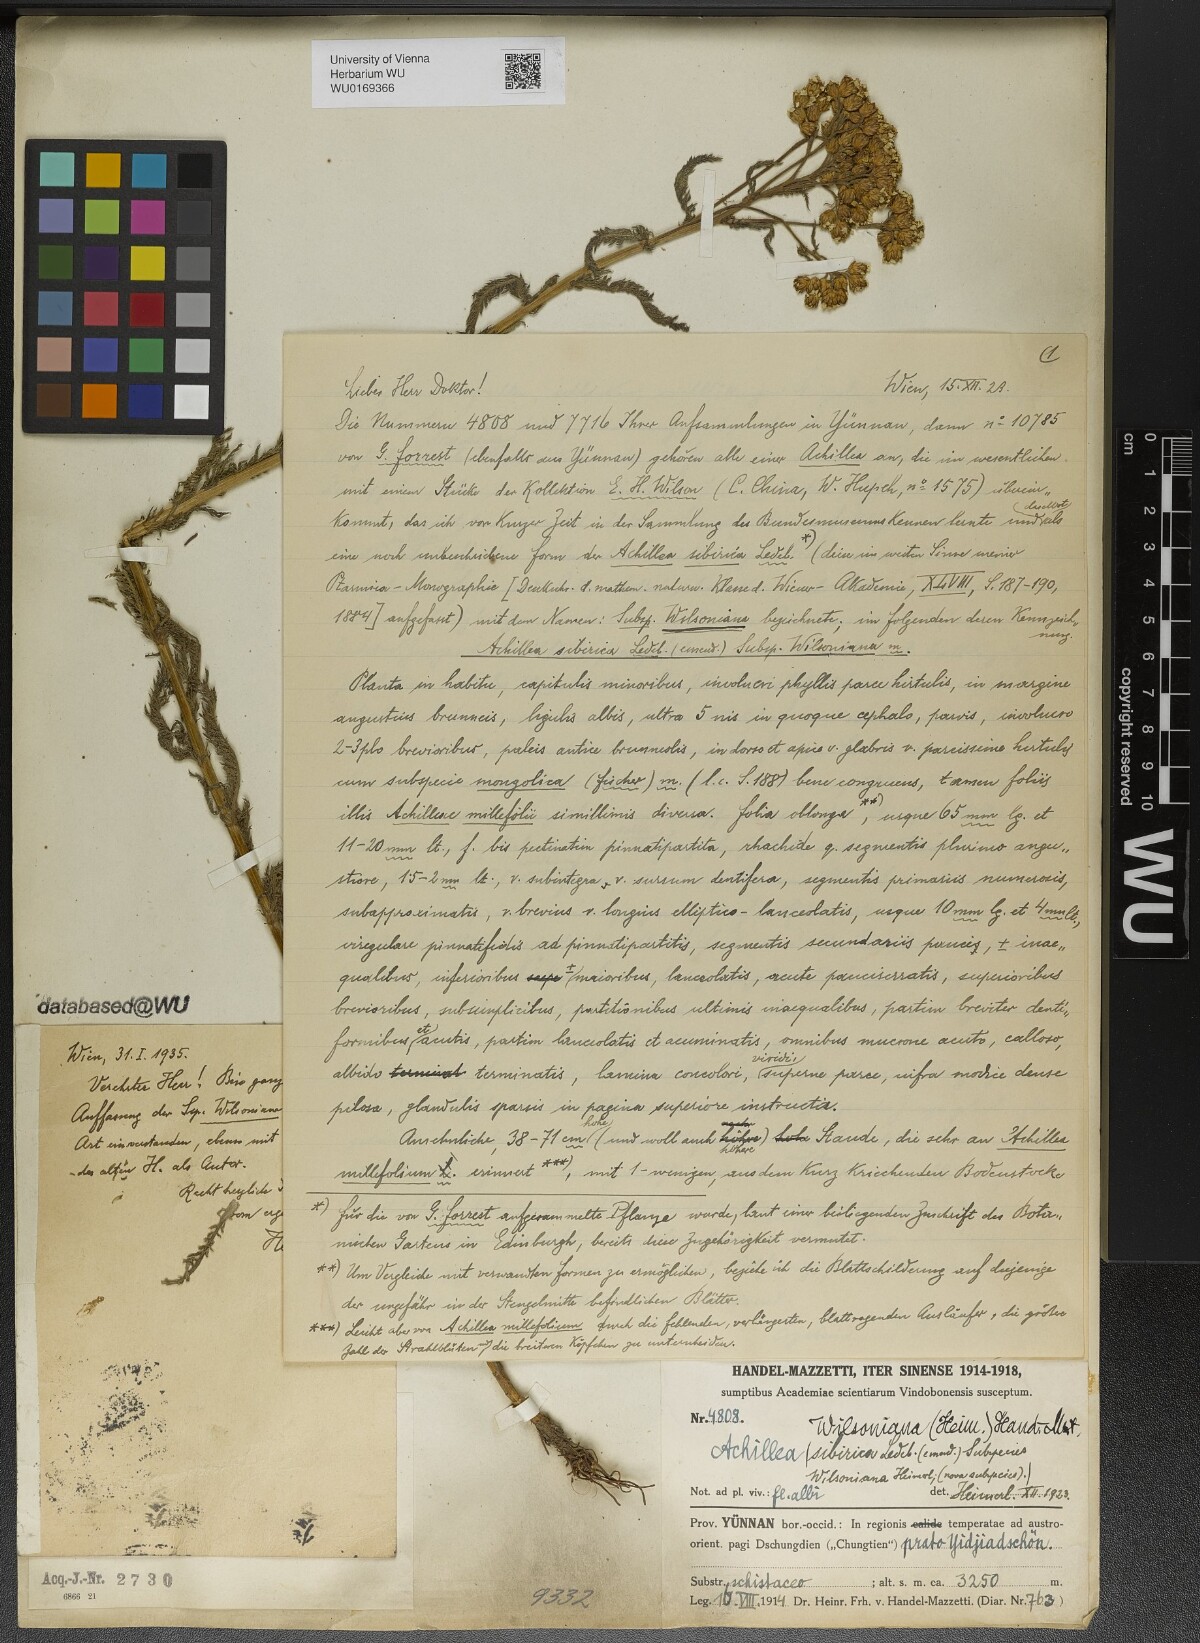 University of Vienna
Herbarium WU
WU0169366
1
Liebes Herr Doktor! Wien, 15.XII.23.
Die Nummern 4808 und 7716 Ihrer Aufsammlungen in Yünnan, dann nº 10785
von G. Forrest (ebenfalls aus Yünnan) gehören alle einer Achillea an, die im wesentlichen
mit einem Stücke der Kollektion E. H. Wilson (C. China, W. Hupeh, nº 1575) überein-
kommt, das ich vor kurzer Zeit in der Sammlung des Bundesmuseums kennen lernte und daselbst als
eine noch unbeschriebene Form der Achillea sibirica Ledeb. *) (diese im weiten Sinne meiner
Ptarmica-Monographie [Denkschr. d. mathem. naturw. Klasse d. Wiener Akademie, XLVIII, S. 187-190,
1884] aufgefasst) mit dem Namen: Subsp. Wilsoniana bezeichnete; im folgenden deren Kennzeich-
nung.
Achillea sibirica Ledeb. (emend.) Subsp. Wilsoniana m.
Planta in habitu, capitulis minoribus, involucri phyllis parce hirtulis, in margine
angustius brunneis, ligulis albis, ultra 5 nis in quoque cephalo, parvis, involucro
2-3plo brevioribus, paleis antice brunneolis, in dorso et apice v. glabris v. parcissime hirtulis
cum subspecie mongolica (Fischer) m. (l. c. S. 188) bene congruens, tamen foliis
illis Achilleae millefolii simillimis diversa. Folia oblonga **), usque 65 mm lg. et
11-20 mm lt., f. bis pectinatim pinnatipartita, rhachide q. segmentis plurimo angu-
stiore, 1 5-2 mm lt., v. subintegra, v. sursum dentifera, segmentis primariis numerosis,
subapproximatis, v. brevius v. longius elliptico-lanceolatis, usque 10 mm lg. et 4 mm lt.,
irregulare pinnatifidis ad pinnatipartitis, segmentis secundariis paucis, ± inae-
qualibus, inferioribus ± maioribus, lanceolatis, acute pauciserratis, superioribus
brevioribus, subsimplicibus, partitionibus ultimis inaequalibus, partim breviter denti-
formibus et acutis, partim lanceolatis et acuminatis, omnibus mucrone acuto, calloso,
albido terminat terminatis, lamina concolori, viridi, superne parce, infra modice dense
pilosa, glandulis sparsis in pagina superiore instructa.
Ansehnliche, 38-71 cm hohe (und wohl auch höhere) Staude, die sehr an Achillea
millefolium L. erinnert ***), mit 1-wenigen, aus dem kurz kriechenden Bodenstocke
*) Für die von G. Forrest aufgesammelte Pflanze wurde, laut einer beiliegenden Zuschrift des Bota-
nischen Gartens in Edinburgh, bereits diese Zugehörigkeit vermutet.
**) Um Vergleiche mit verwandten Formen zu ermöglichen, beziehe ich die Blattschilderung auf diejenige
der ungefähr in der Stengelmitte befindlichen Blätter.
***) Leicht aber von Achillea millefolium durch die fehlenden, verlängerten, blatttragenden Ausläufer, die größere
Zahl der Strahlblüten, die breiteren Köpfchen zu unterscheiden.
databased@WU
Wien, 31.I.1935.
Verehrter Herr! Bin ganz
Auffassung der Ssp. Wilsoniana
Art einverstanden, ebenso mit
H. als Autor.
Recht herzliche
Acq.-J.-Nr. 2730
6866 21
9332
HANDEL-MAZZETTI, ITER SINENSE 1914-1918,
sumptibus Academiae scientiarum Vindobonensis susceptum.
Nr. 4808.
Wilsoniana (Heim.) Hand.-Mzt.
Achillea (sibirica Ledeb. (emend.) Subspecies
Wilsoniana Heimerl, (nova subspecies).)
Not. ad pl. viv.: fl. albi det. Heimerl. XII. 1923.
Prov. YÜNNAN bor.-occid.: In regionis calide temperatae ad austro-
orient. pagi Dschungdien („Chungtien“) prato Yidjiadschön.
Substr. schistaceo ; alt. s. m. ca. 3250 m.
Leg. VIII. 1914 Dr. Heinr. Frh. v. Handel-Mazzetti. (Diar. Nr. 763)
cm 0 1 2 3 4 5 6 7 8 9 10
copyright reserved
WU